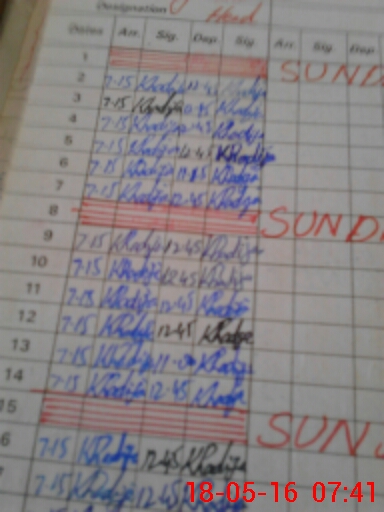 Designation
Head
Dates Arr. Sig. Dep. Sig. Arr. Sig. Dep
1 SUND
2 7-15 Khadija 12-45 Khadija
3 7-15 Khadija
4 7-15 Khadija 12-45 Khadija
5 7-15 Khadija 12-45 Khadija
6 7-15 Khadija Khadija
7 7-15 Khadija 12-45 Khadija
8 SUND
9 7-15 Khadija 12-45 Khadija
10 7-15 Khadija 12-45 Khadija
11 7-15 Khadija 12-45 Khadija
12 7-15 Khadija 12-45 Khadija
13 7-15 Khadija Khadija
14 7-15 Khadija 12-45 Khadija
15 SUN
6 7-15 Khadija 12-45 Khadija
7 7-15 Khadija 12-45 Khadija
18-05-16 07:41